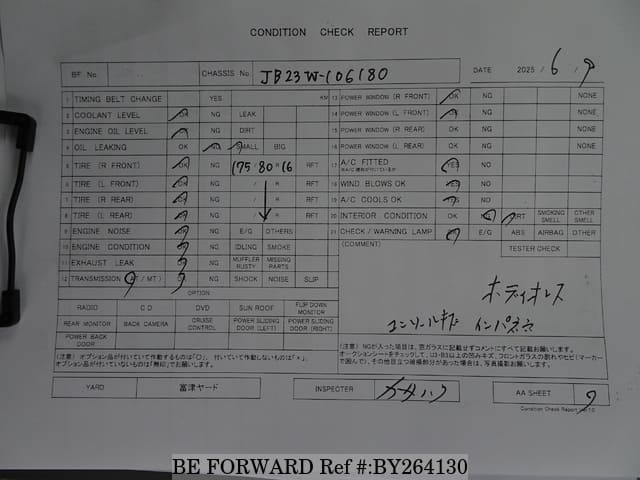 CONDITION CHECK REPORT
BF No. CHASSIS No. JB23W-106180 DATE 2025 / 6 / 9
1 TIMING BELT CHANGE YES KM 13 POWER WINDOW (R FRONT) OK NG NONE
2 COOLANT LEVEL OK NG LEAK 14 POWER WINDOW (L FRONT) OK NG NONE
3 ENGINE OIL LEVEL OK NG DIRT 15 POWER WINDOW (R REAR) OK NG NONE
4 OIL LEAKING OK NG SMALL BIG 16 POWER WINDOW (L REAR) OK NG NONE
5 TIRE (R FRONT) OK NG 175 / 80 R 16 RFT 17 A/C FITTED YES NO
6 TIRE (L FRONT) OK NG / R RFT 18 WIND BLOWS OK YES NO
7 TIRE (R REAR) OK NG / R RFT 19 A/C COOLS OK YES NO
8 TIRE (L REAR) OK NG / R RFT 20 INTERIOR CONDITION OK NG DIRT SMOKING SMELL OTHER SMELL
9 ENGINE NOISE NG E/G OTHERS 21 CHECK / WARNING LAMP E/G ABS AIRBAG OTHER
10 ENGINE CONDITION NG IDLING SMOKE (COMMENT) TESTER CHECK
11 EXHAUST LEAK NG MUFFLER RUSTY MISSING PARTS
12 TRANSMISSION (AT / MT) NG SHOCK NOISE SLIP
OPTION
ボディオレス
RADIO CD DVD SUN ROOF FLIP DOWN MONITOR
コンソールキズ インパネ穴
REAR MONITOR BACK CAMERA CRUISE CONTROL POWER SLIDING DOOR (LEFT) POWER SLIDING DOOR (RIGHT)
POWER BACK DOOR
(注意) オプション品が付いていて作動するものは「○」、付いていて作動しないものは「×」、
オプション品が付いていないものは「無印」でお願いします。
(注意) NGが入った項目は、窓ガラスに記載せずコメントにすべて記載お願いします。
YARD 富津ヤード INSPECTER AA SHEET
Condition Check Report
BE FORWARD Ref #:BY264130